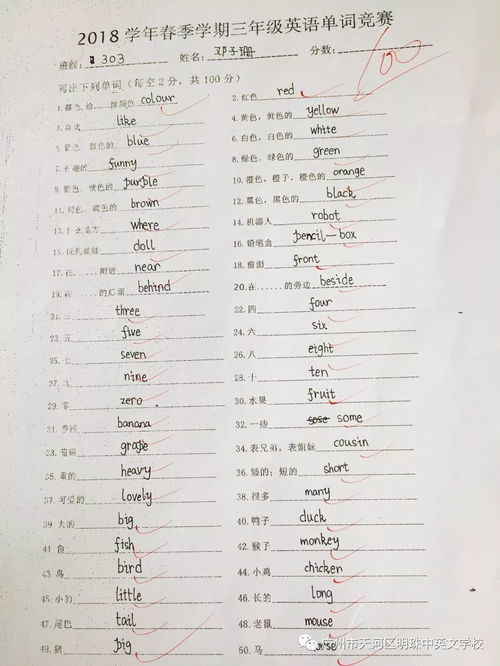 2018 学年春季学期三年级英语单词竞赛
班级: 303 姓名: 邓子珊 分数: 100
写出下列单词 (每空2分,共100分)
1. 颜色,给……涂颜色 colour 2. 红色 red
3. 喜欢 like 4. 黄色,黄色的 yellow
5. 蓝色,蓝色的 blue 6. 白色,白色的 white
7. 有趣的 funny 8. 绿色,绿色的 green
9. 紫色,紫色的 purple 10. 橙色,橙子,橙色的 orange
11. 褐色,褐色的 brown 12. 黑色,黑色的 black
13. 什么地方 where 14. 机器人 robot
15. 玩具娃娃 doll 16. 铅笔盒 pencil-box
17. 在……附近 near 18. 前面 front
19. 在……的后面 behind 20. 在……的旁边 beside
21. 三 three 22. 四 four
23. 五 five 24. 六 six
25. 七 seven 26. 八 eight
27. 九 nine 28. 十 ten
29. 零 zero 30. 水果 fruit
31. 香蕉 banana 32. 一些 some
33. 葡萄 grape 34. 表兄弟,表姐妹 cousin
35. 重的 heavy 36. 矮的;短的 short
37. 可爱的 lovely 38. 很多 many
39. 大的 big 40. 鸭子 duck
41 鱼 fish 42. 猴子 monkey
43. 鸟 bird 44. 小鸡 chicken
45. 小的 little 46. 长的 long
47. 尾巴 tail 48. 老鼠 mouse
49. 猪 pig 50. 马
州市天河区明珠中英文学校